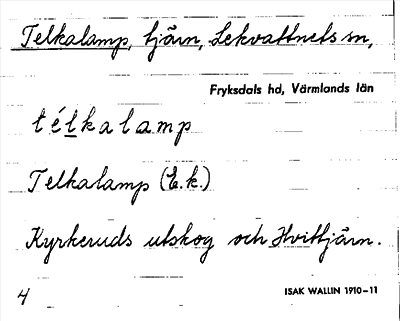 Telkalamp, tjärn, Lekvattnets sn,
Fryksdals hd, Värmlands län
télkalamp
Telkalamp (E.k.)
Kyrkeruds utskog och Hvittjärn.
4
ISAK WALLIN 1910-11